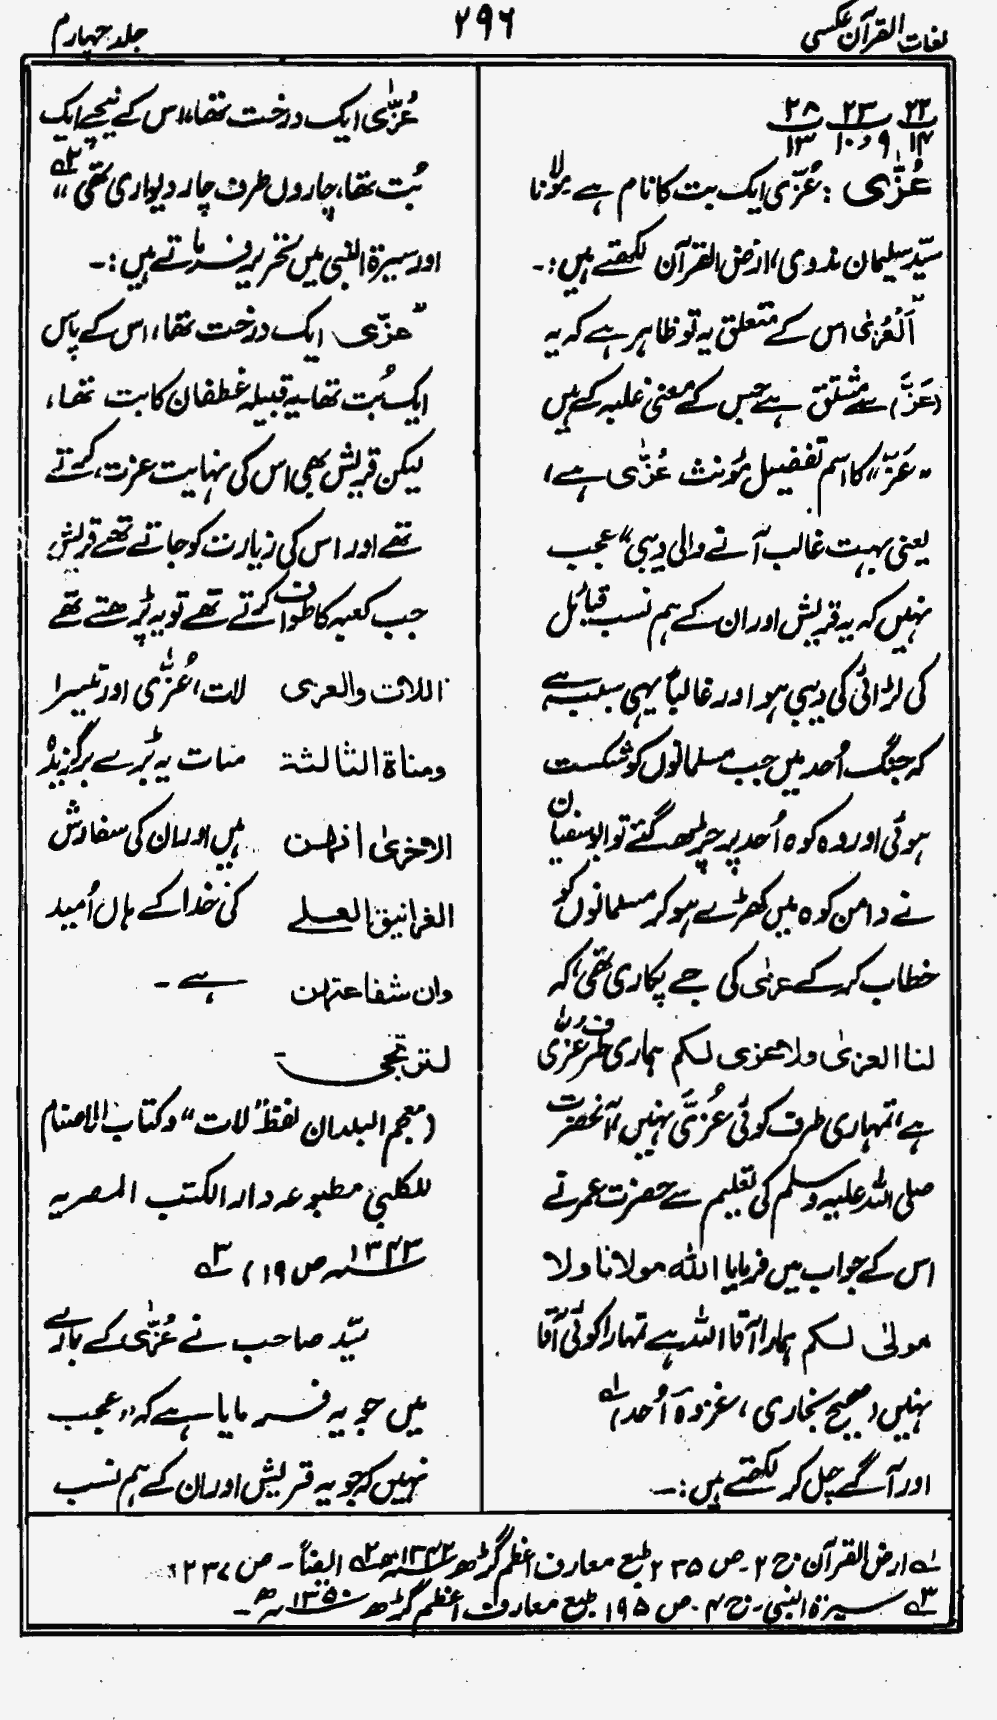 لغات القرآن عکسی
۲۹۶
جلد چہارم
۲۲/۱۴ ۲۳/۹ و ۱۰ ۲۸/۱۳
عُزّٰی : عُزّٰی ایک بت کا نام ہے مولانا
سیّد سلیمان ندوی، ارض القرآن لکھتے ہیں :۔
"اَلْعُزّٰی اس کے متعلق یہ تو ظاہر ہے کہ یہ
(عَزَّ) سے مشتق ہے جس کے معنی غلبہ کے ہیں
"عَزّ" کا اسم تفضیل مؤنث عُزّٰی ہے،
یعنی بہت غالب آنے والی دیبی" عجب
نہیں کہ یہ قریش اور ان کے ہم نسب قبائل
کی لڑائی کی دیبی ہو اور غالباً یہی سبب ہے
کہ جنگ اُحد میں جب مسلمانوں کو شکست
ہوئی اور وہ کوہ اُحد پر چڑھ گئے تو ابوسفیان
نے دامن کوہ میں کھڑے ہو کر مسلمانوں کو
خطاب کر کے عزیٰ کی جے پکاری تھی، کہ
لنا العزیٰ ولا عزی لکم ہماری طرف عزّی
ہے، تمہاری طرف کوئی عُزّٰی نہیں، آنحضرت
صلی اللہ علیہ وسلم کی تعلیم سے حضرت عمر نے
اس کے جواب میں فرمایا اللہ مولانا ولا
مولیٰ لکم ہمارا آقا اللہ ہے تمہارا کوئی آقا
نہیں (صحیح بخاری، غزوہ اُحد) لہ
اور آگے چل کر لکھتے ہیں :۔
عُزّٰی ایک درخت تھا، اس کے نیچے ایک
بُت تھا، چاروں طرف چار دیواری تھی" ۲ہ
اور سیرۃ النبی میں تحریر فرماتے ہیں :۔
"عزّی ایک درخت تھا، اس کے پاس
ایک بُت تھا یہ قبیلہ غطفان کا بت تھا،
لیکن قریش بھی اس کی نہایت عزت کرتے
تھے اور اس کی زیارت کو جاتے تھے قریش
جب کعبہ کا طواف کرتے تھے تو یہ پڑھتے تھے
اللات والعزی لات، عُزّٰی اور تیسرا
ومناۃ الثالثۃ منات یہ بڑے برگزیدہ
الاخریٰ انھن ہیں اور ان کی سفارش
الغرانیق العلے کی خدا کے ہاں اُمید
وان شفاعتھن ہے ۔
لترتجی
(معجم البلدان لفظ "لات" و کتاب الاصنام
للکلبی مطبوعہ دار الکتب المصریہ
۱۳۴۳ ص ۱۹) ۳ہ
سیّد صاحب نے عُزّٰی کے بارے
میں جو یہ فرمایا ہے کہ "عجب
نہیں کہ جو یہ قریش اور ان کے ہم نسب
لہ ارض القرآن ج ۲۔ ص ۲۳۵ طبع معارف اعظم گڑھ ۱۳۴۲ھ ۲ہ ایضاً ۔ ص ۲۳۷
۳ہ سیرۃ النبی ۔ ج ۴ ۔ ص ۱۹۵ طبع معارف اعظم گڑھ ۱۳۵۰ھ ۔